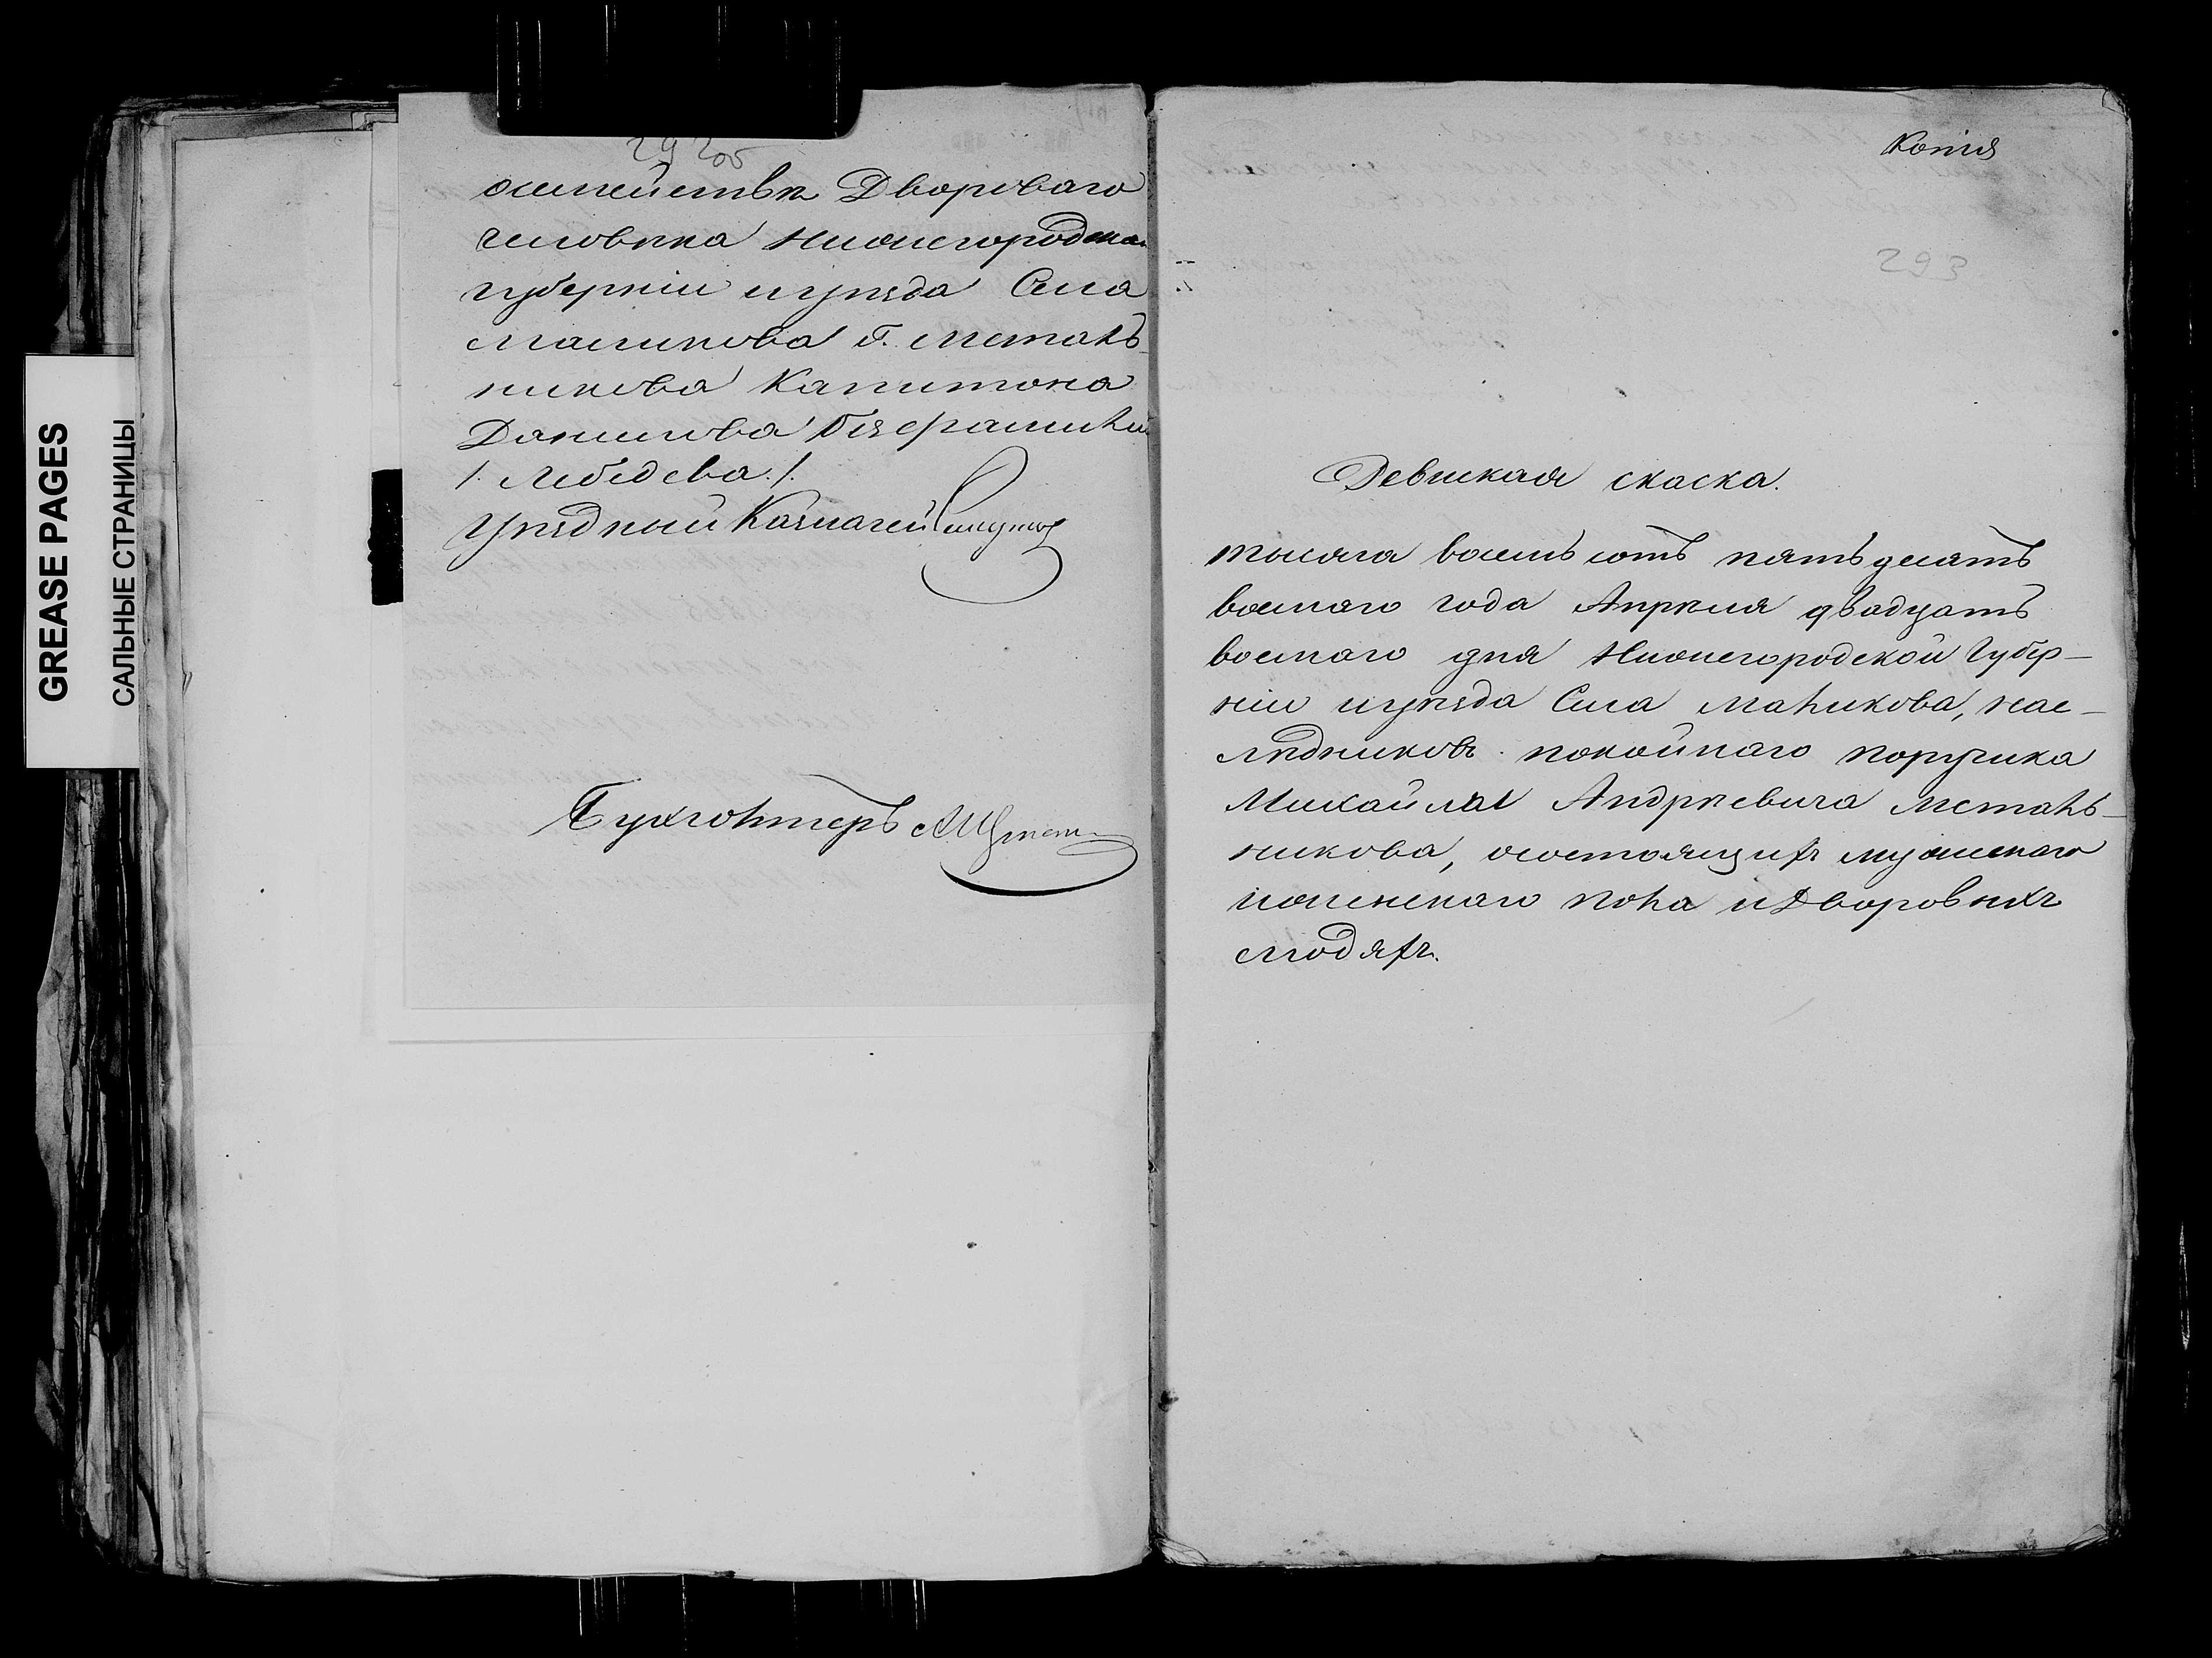 GREASE PAGES
САЛЬНЫЕ СТРАНИЦЫ
292об
осемействѣ Двороваго
человѣка Нижегородской
губерніи иуѣзда Села
Маликова г. Металь-
никова Капитона
Данилова
/. Лебедева ./.
Уѣздный Казначей
Бухголтеръ
Копія
293
Ревизкая скаска.
тысяча восемьсотъ пятьдесятъ
восмаго года Апрѣля двадцать
восмаго дня Нижегородской Губер-
ніи иуѣзда Села Маликова, нас-
лѣдниковъ покойнаго поручика
Михайла Андрѣевича Металь-
никова, осостоящихъ мужескаго
иженскаго пола иДворовыхъ
людяхъ.